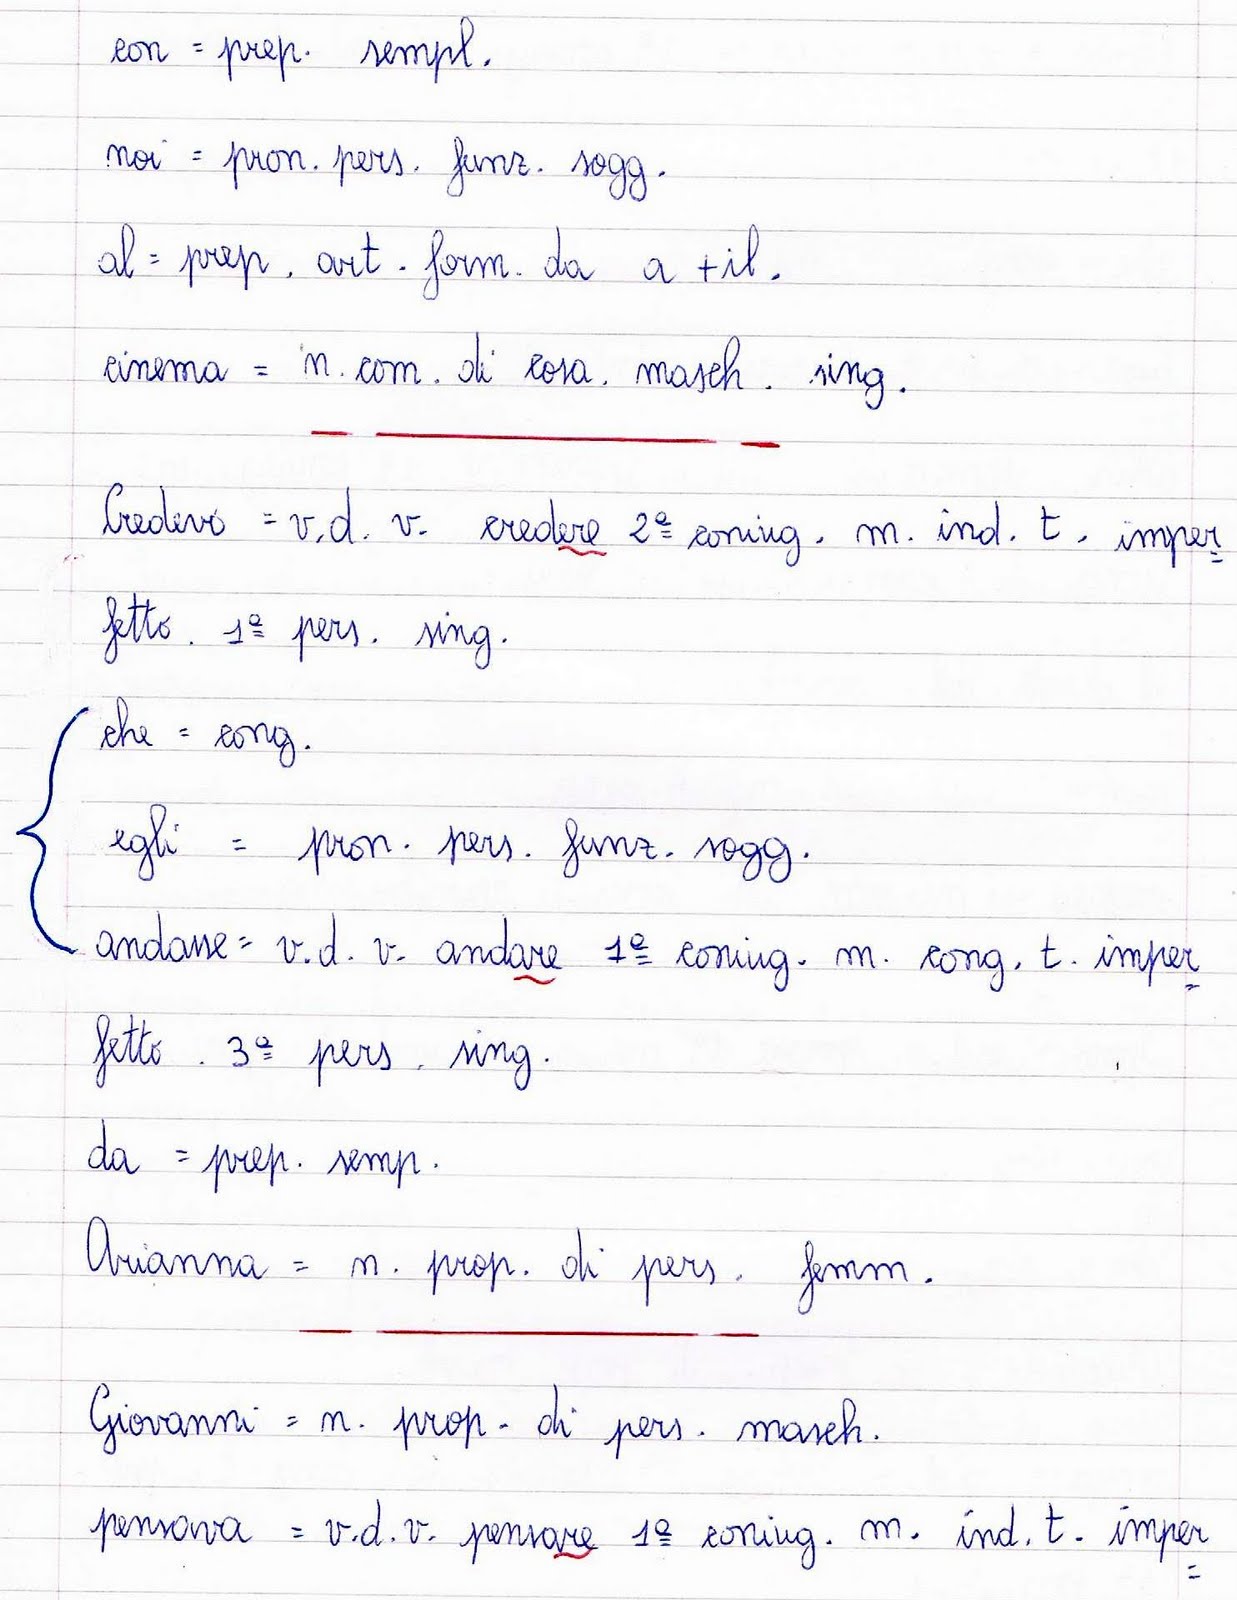 con = prep. sempl.
noi = pron. pers. funz. sogg.
al = prep. art. form. da a + il.
cinema = n. com. di cosa. masch. sing.
Credevo = v. d. v. credere 2ª coniug. m. ind. t. imper=
fetto. 1ª pers. sing.
che = cong.
egli = pron. pers. funz. sogg.
andasse = v. d. v. andare 1ª coniug. m. cong. t. imper=
fetto. 3ª pers. sing.
da = prep. semp.
Arianna = n. prop. di pers. femm.
Giovanni = n. prop. di pers. masch.
pensava = v. d. v. pensare 1ª coniug. m. ind. t. imper=